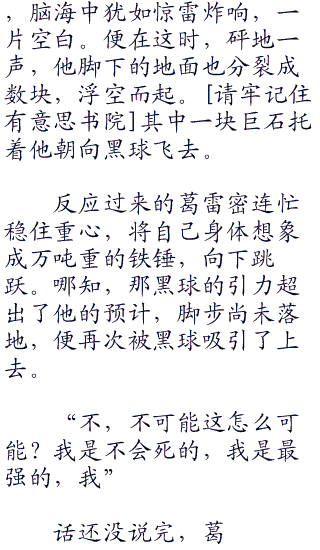 ，脑海中犹如惊雷炸响，一
片空白。便在这时，砰地一
声，他脚下的地面也分裂成
数块，浮空而起。[请牢记住
有意思书院]其中一块巨石托
着他朝向黑球飞去。
反应过来的葛雷密连忙
稳住重心，将自己身体想象
成万吨重的铁锤，向下跳
跃。哪知，那黑球的引力超
出了他的预计，脚步尚未落
地，便再次被黑球吸引了上
去。
“不，不可能这怎么可
能？我是不会死的，我是最
强的，我”
话还没说完，葛